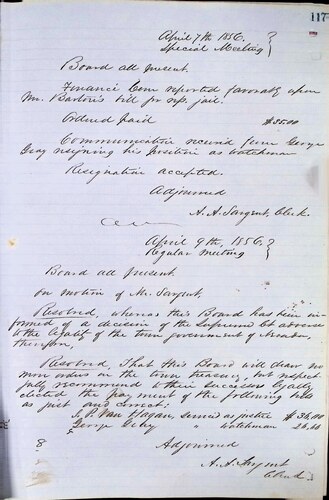 117
April 7th 1856. }
Special Meeting }
Board all present.
Finance Com reported favorably upon
Mr. Barton's bill for rep. jail.
Ordered paid $35.00
Communication received from George
Gray resigning his position as watchman
Resignation accepted.
Adjourned
A. A. Sargent, Clerk.
April 9th, 1856. }
Regular meeting }
Board all present.
On motion of Mr. Sargent,
Resolved, whereas this Board has been in-
formed of a decision of the Supreme Ct adverse
to the legality of the town government of Nevada,
therefore,
Resolved, That this Board will draw no
more orders on the town treasury, but respect-
fully recommend to their successors legally
elected the payment of the following bills
as just and correct:
J. P. Van Hagan, services as justice $36,00
George " watchman
Adjourned
A. A. Sargent
Clerk